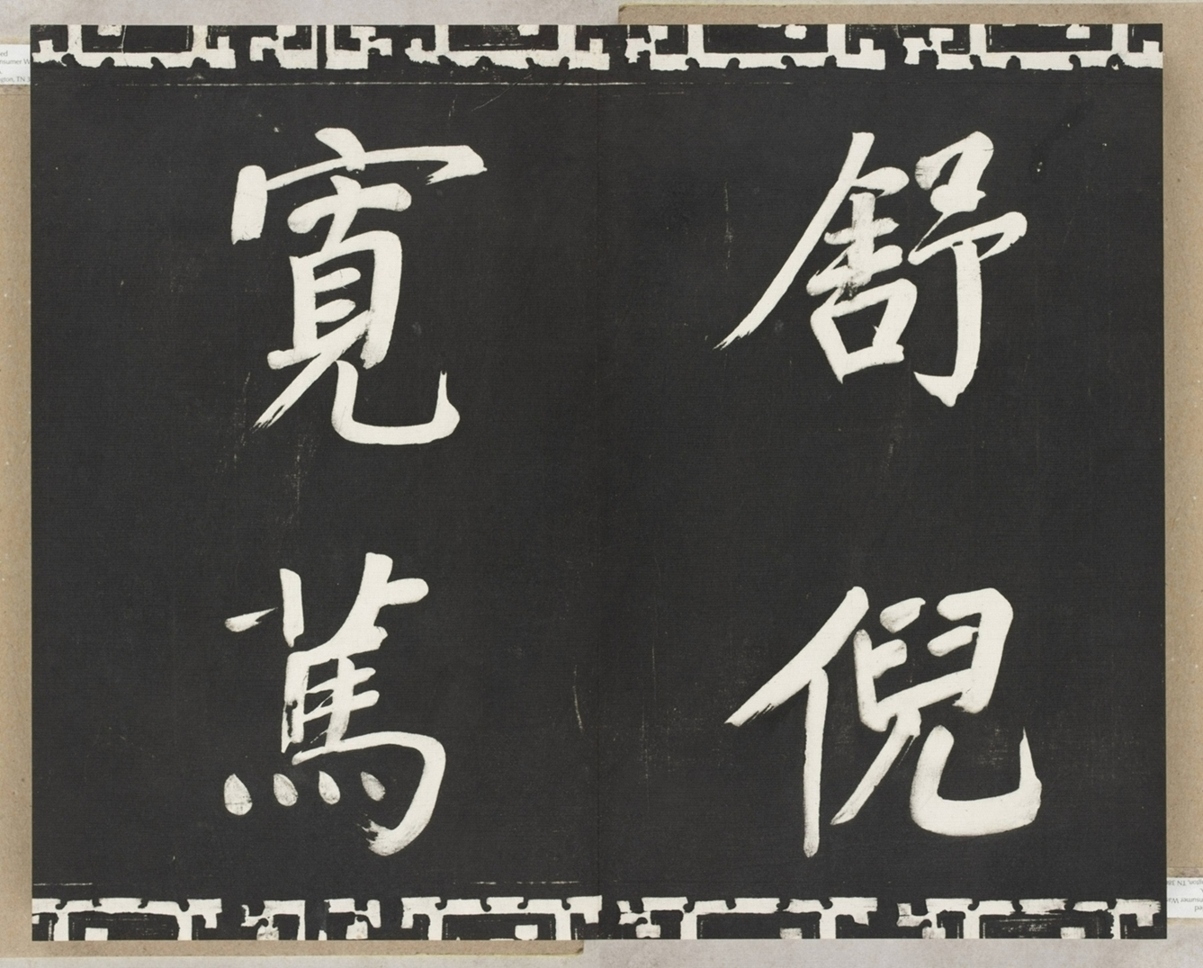 舒倪
寬篤